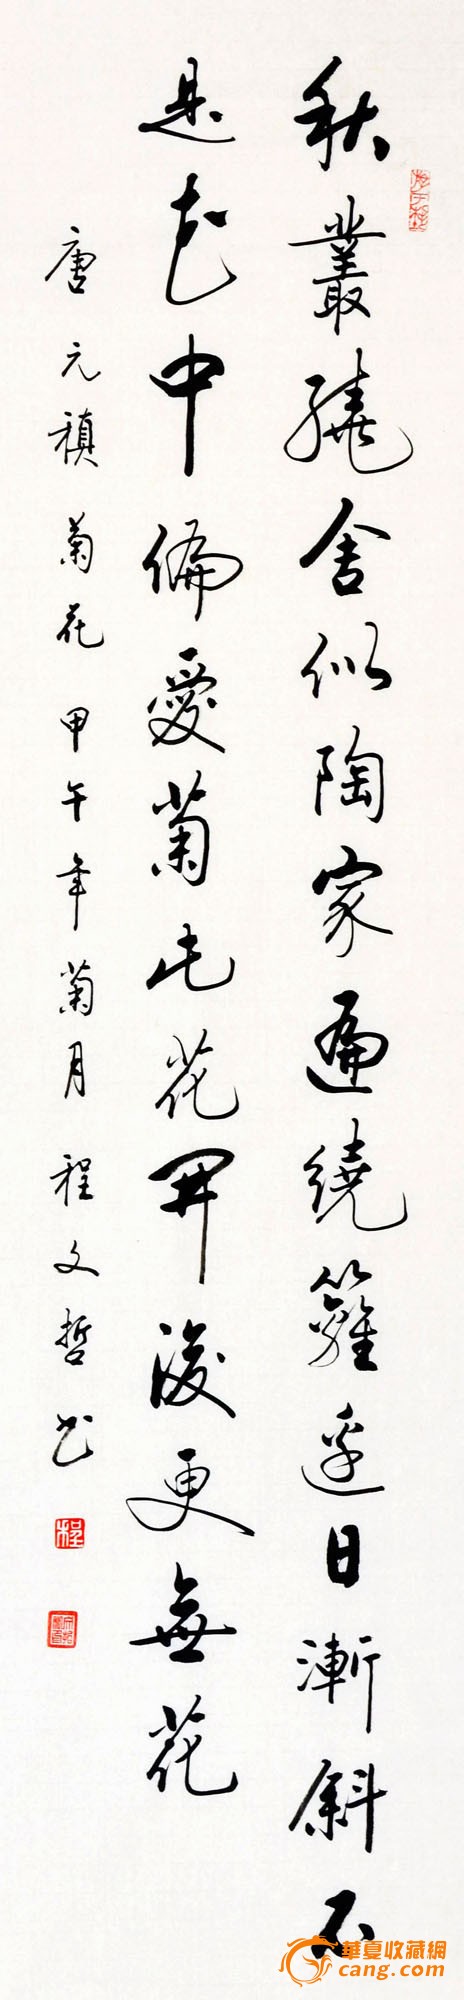 秋叢繞舍似陶家遍繞籬邊日漸斜不
是花中偏愛菊此花開後更無花
唐元稹菊花 甲午年菊月 程文哲书
程
華夏收藏網
cang.com